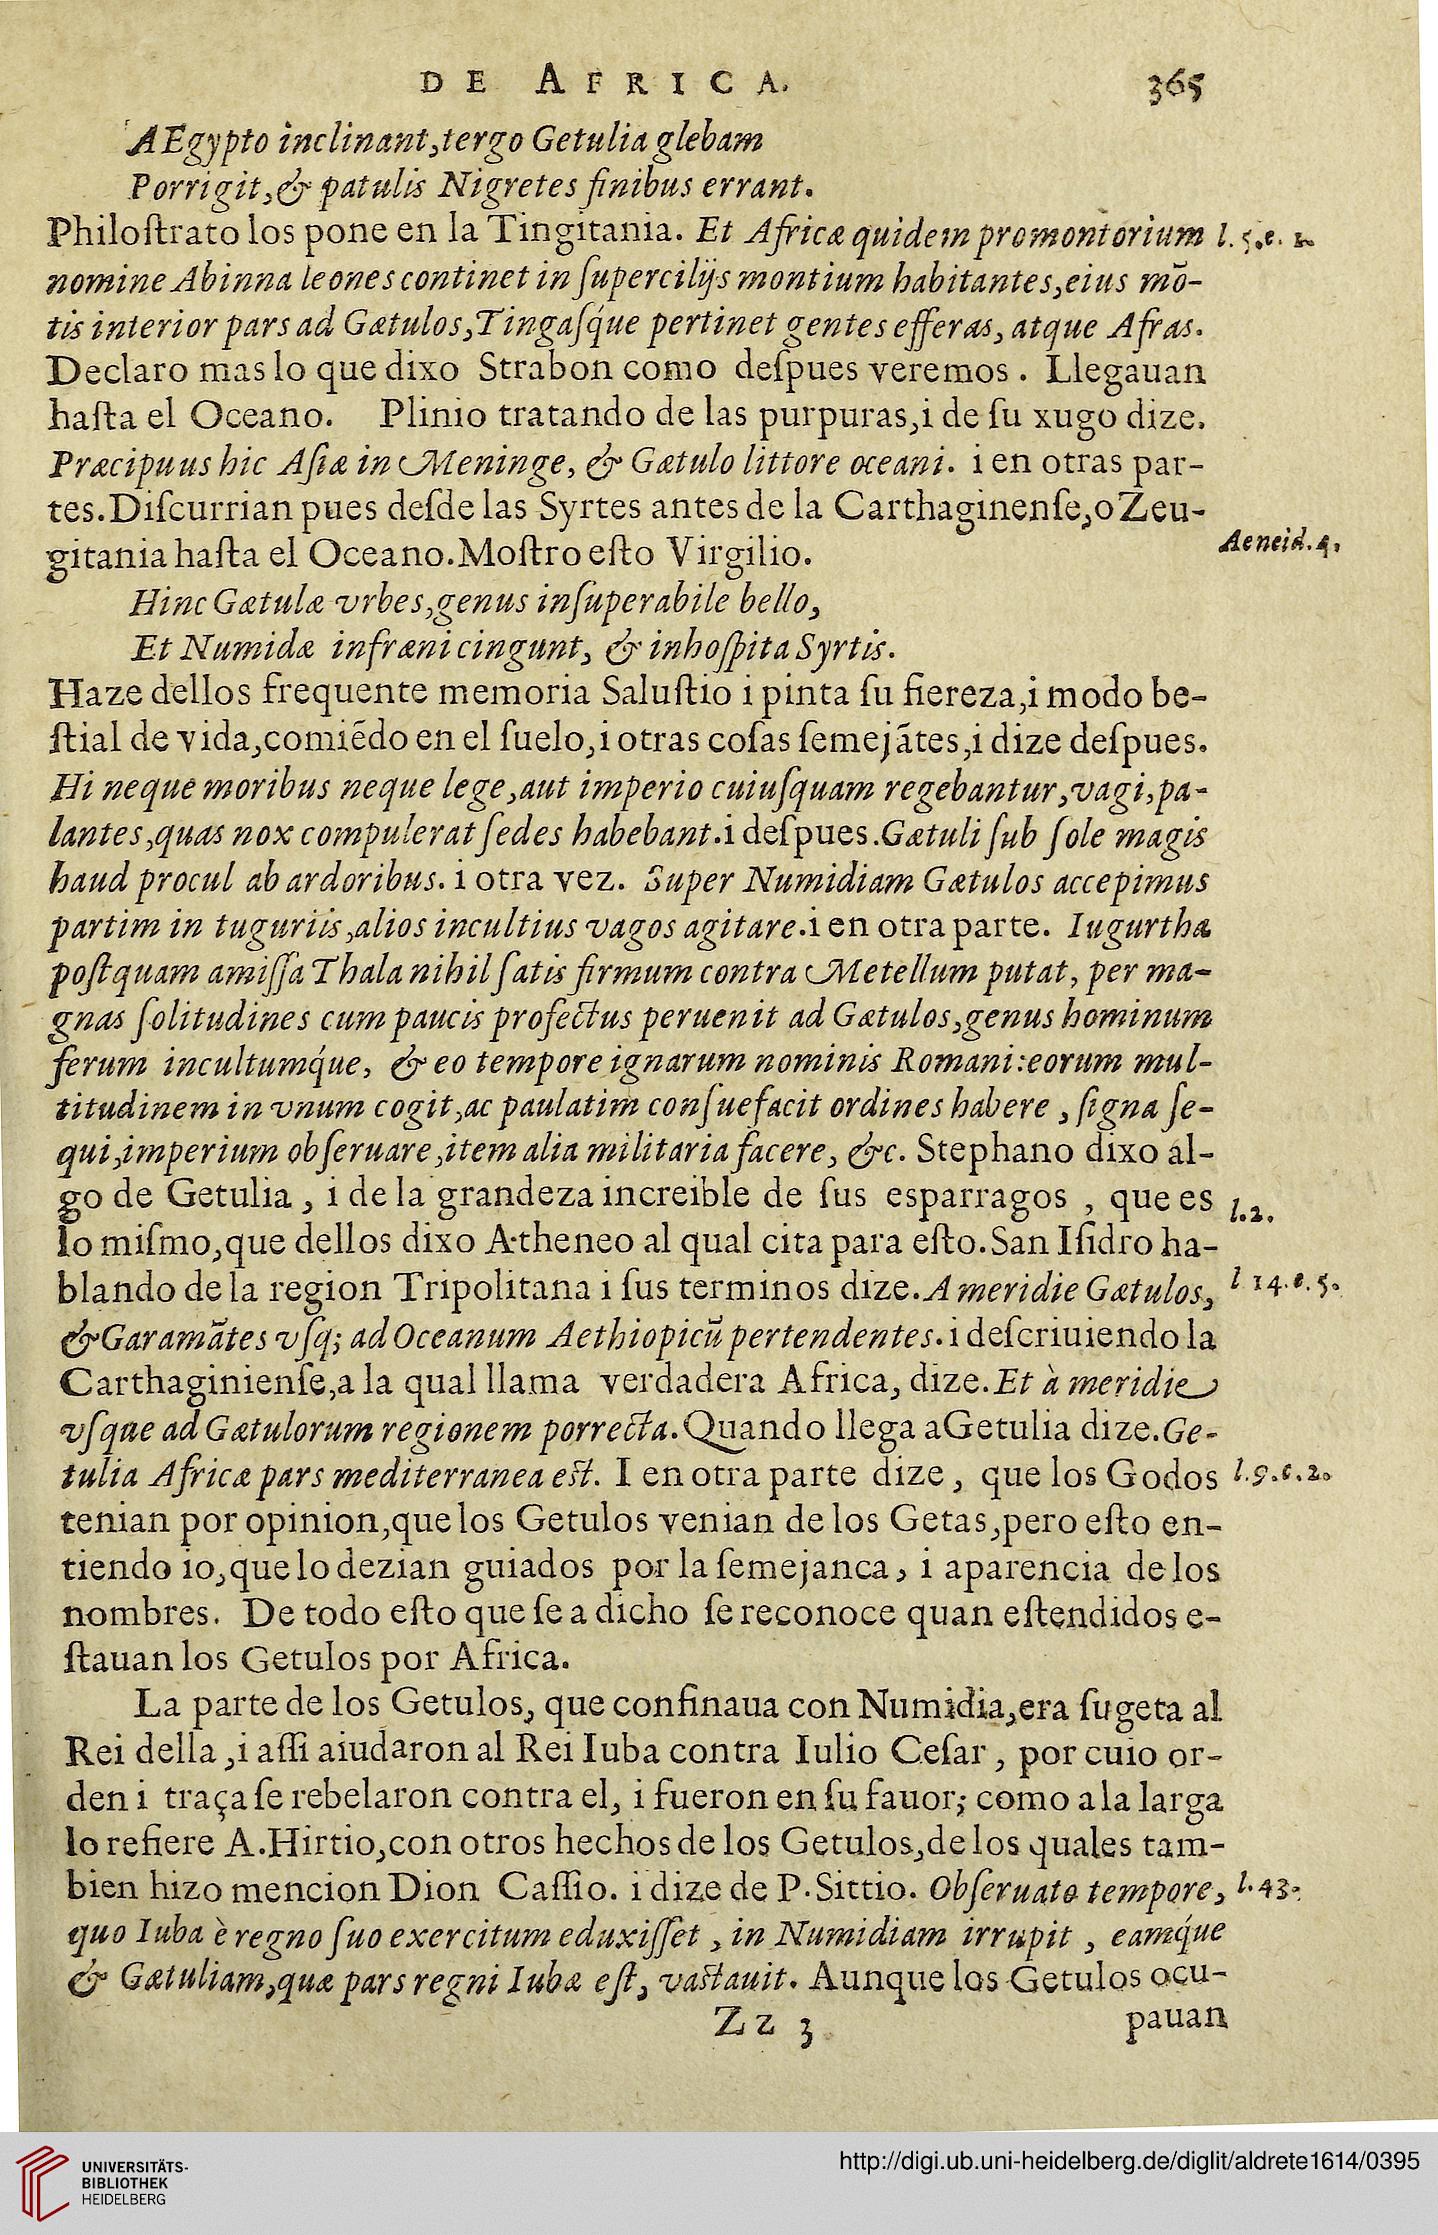 DE AFRICA. 365
AEgypto inclinant,tergo Getulia glebam
Porrigit,& patulis Nigretes finibus errant.
Philoſtrato los pone en la Tingitania. Et Africæ quidem promontorium l. 5.c. 1.
nomine Abinna leones continet in ſupercilijs montium habitantes,eius mō-
tis interior pars ad Gætulos,Tingaſq́ue pertinet gentes efferas, atque Afras.
Declaro mas lo que dixo Strabon como deſpues veremos. Llegauan
haſta el Oceano. Plinio tratando de las purpuras,i de ſu xugo dize.
Præcipuus hic Aſiæ in Meninge, & Gætulo littore oceani. i en otras par-
tes.Diſcurrian pues deſde las Syrtes antes de la Carthaginenſe,o Zeu-
gitania haſta el Oceano.Moſtro eſto Virgilio. Aeneid.4.
Hinc Gætulæ vrbes,genus inſuperabile bello,
Et Numidæ infræni cingunt, & inhoſpita Syrtis.
Haze dellos frequente memoria Saluſtio i pinta ſu fiereza,i modo be-
ſtial de vida,comiēdo en el ſuelo,i otras coſas ſemejātes,i dize deſpues.
Hi neque moribus neque lege,aut imperio cuiuſquam regebantur,vagi,pa-
lantes,quas nox compulerat ſedes habebant.i deſpues.Gætuli ſub ſole magis
haud procul ab ardoribus. i otra vez. Super Numidiam Gætulos accepimus
partim in tuguriis,alios incultius vagos agitare.i en otra parte. Iugurtha
poſtquam amiſſa Thala nihil ſatis firmum contra Metellum putat, per ma-
gnas ſolitudines cum paucis profectus peruenit ad Gætulos,genus hominum
ferum incultumq́ue, & eo tempore ignarum nominis Romani:eorum mul-
titudinem in vnum cogit,ac paulatim conſuefacit ordines habere, ſigna ſe-
qui,imperium obſeruare,item alia militaria facere, &c. Stephano dixo al-
go de Getulia, i de la grandeza increible de ſus esparragos, que es l.2.
lo miſmo,que dellos dixo Atheneo al qual cita para eſto.San Iſidro ha-
blando de la region Tripolitana i ſus terminos dize.A meridie Gætulos, l 14.c.5.
& Garamātes vſq; ad Oceanum Aethiopicū pertendentes. i deſcriuiendo la
Carthaginienſe,a la qual llama verdadera Africa, dize.Et à meridie
vſque ad Gætulorum regionem porrecta.Quando llega a Getulia dize.Ge-
tulia Africæ pars mediterranea eſt. I en otra parte dize, que los Godos l.9.c.2.
tenian por opinion,que los Getulos venian de los Getas,pero eſto en-
tiendo io,que lo dezian guiados por la ſemejanca, i aparencia de los
nombres. De todo eſto que ſe a dicho ſe reconoce quan eſtendidos e-
ſtauan los Getulos por Africa.
La parte de los Getulos, que confinaua con Numidia,era ſugeta al
Rei della,i aſſi aiudaron al Rei Iuba contra Iulio Ceſar, por cuio or-
den i traça ſe rebelaron contra el, i fueron en ſu fauor; como a la larga
lo refiere A.Hirtio,con otros hechos de los Getulos,de los quales tam-
bien hizo mencion Dion Caſſio. i dize de P.Sittio. Obſeruato tempore, l.43.
quo Iuba è regno ſuo exercitum eduxiſſet, in Numidiam irrupit, eamq́ue
& Gætuliam,quæ pars regni Iubæ eſt, vaſtauit. Aunque los Getulos ocu-
Zz 3 pauan
UNIVERSITÄTS-
BIBLIOTHEK
HEIDELBERG
http://digi.ub.uni-heidelberg.de/diglit/aldrete1614/0395